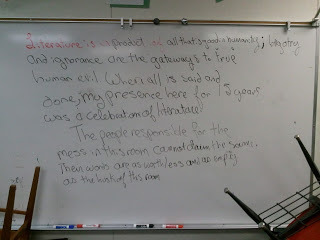 Literature is a product of all that's good in humanity; bigotry
and ignorance are the gateways to true
human evil. When all is said and
done, my presence here for 15 years
was a celebration of literature.
The people responsible for the
mess in this room cannot claim the same.
Their words are as worthless and as empty
as the husk of this room